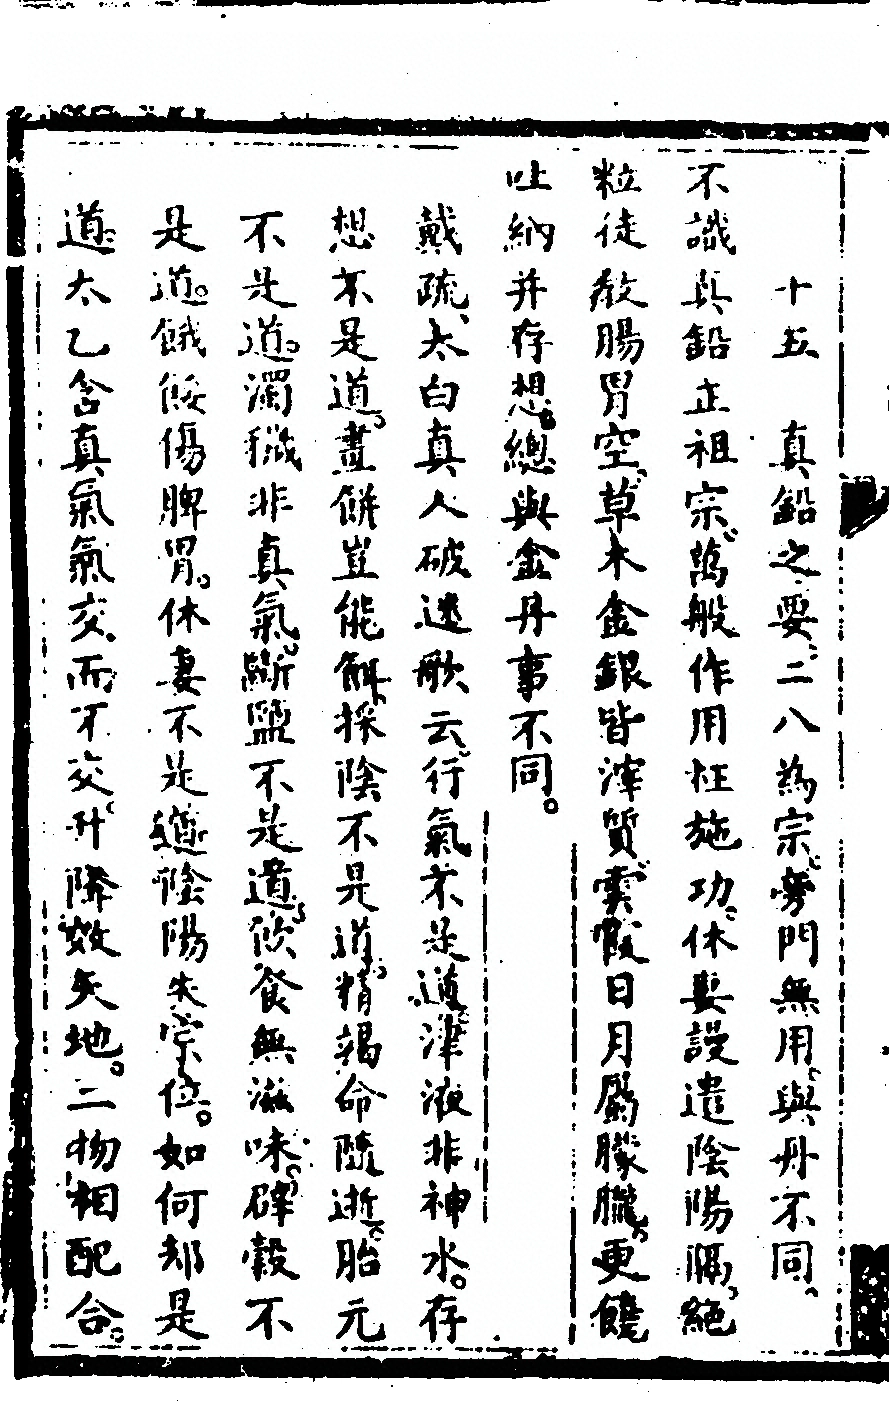 十五　真鉛之要、二八為宗、旁門無用、與丹不同。
不識真鉛正祖宗、萬般作用枉施功、休妻謾遣陰陽隔、絕
粒徒教腸胃空、草木金銀皆滓質、雲霞日月屬朦朧、更饒
吐納并存想、總與金丹事不同。
戴疏、太白真人破迷歌云、行氣不是道、津液非神水。存
想不是道、畫餅豈能解、採陰不是道、精竭命隨逝、胎元
不是道。濁穢非真氣、斷鹽不是道、飲食無滋味、辟穀不
是道。餓餒傷脾胃。休妻不是道、陰陽失宗位。如何却是
道、太乙含真氣、氣交而不交、升降效天地。二物相配合。